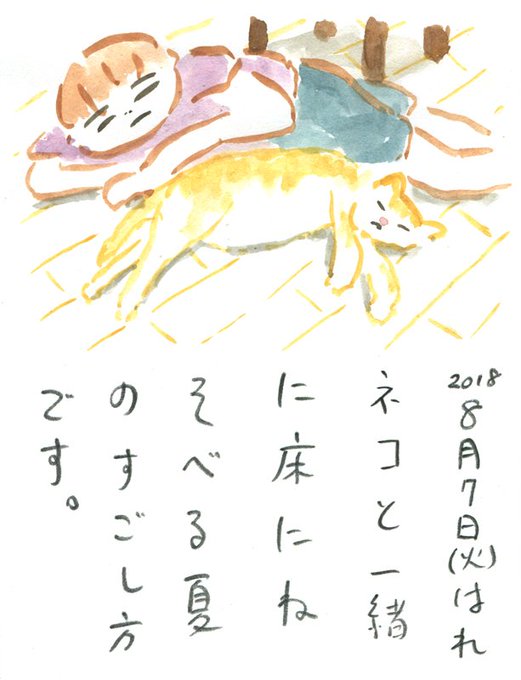 2018
8月7日(火)はれ
ネコと一緒
に床にね
そべる夏
のすごし方
です。